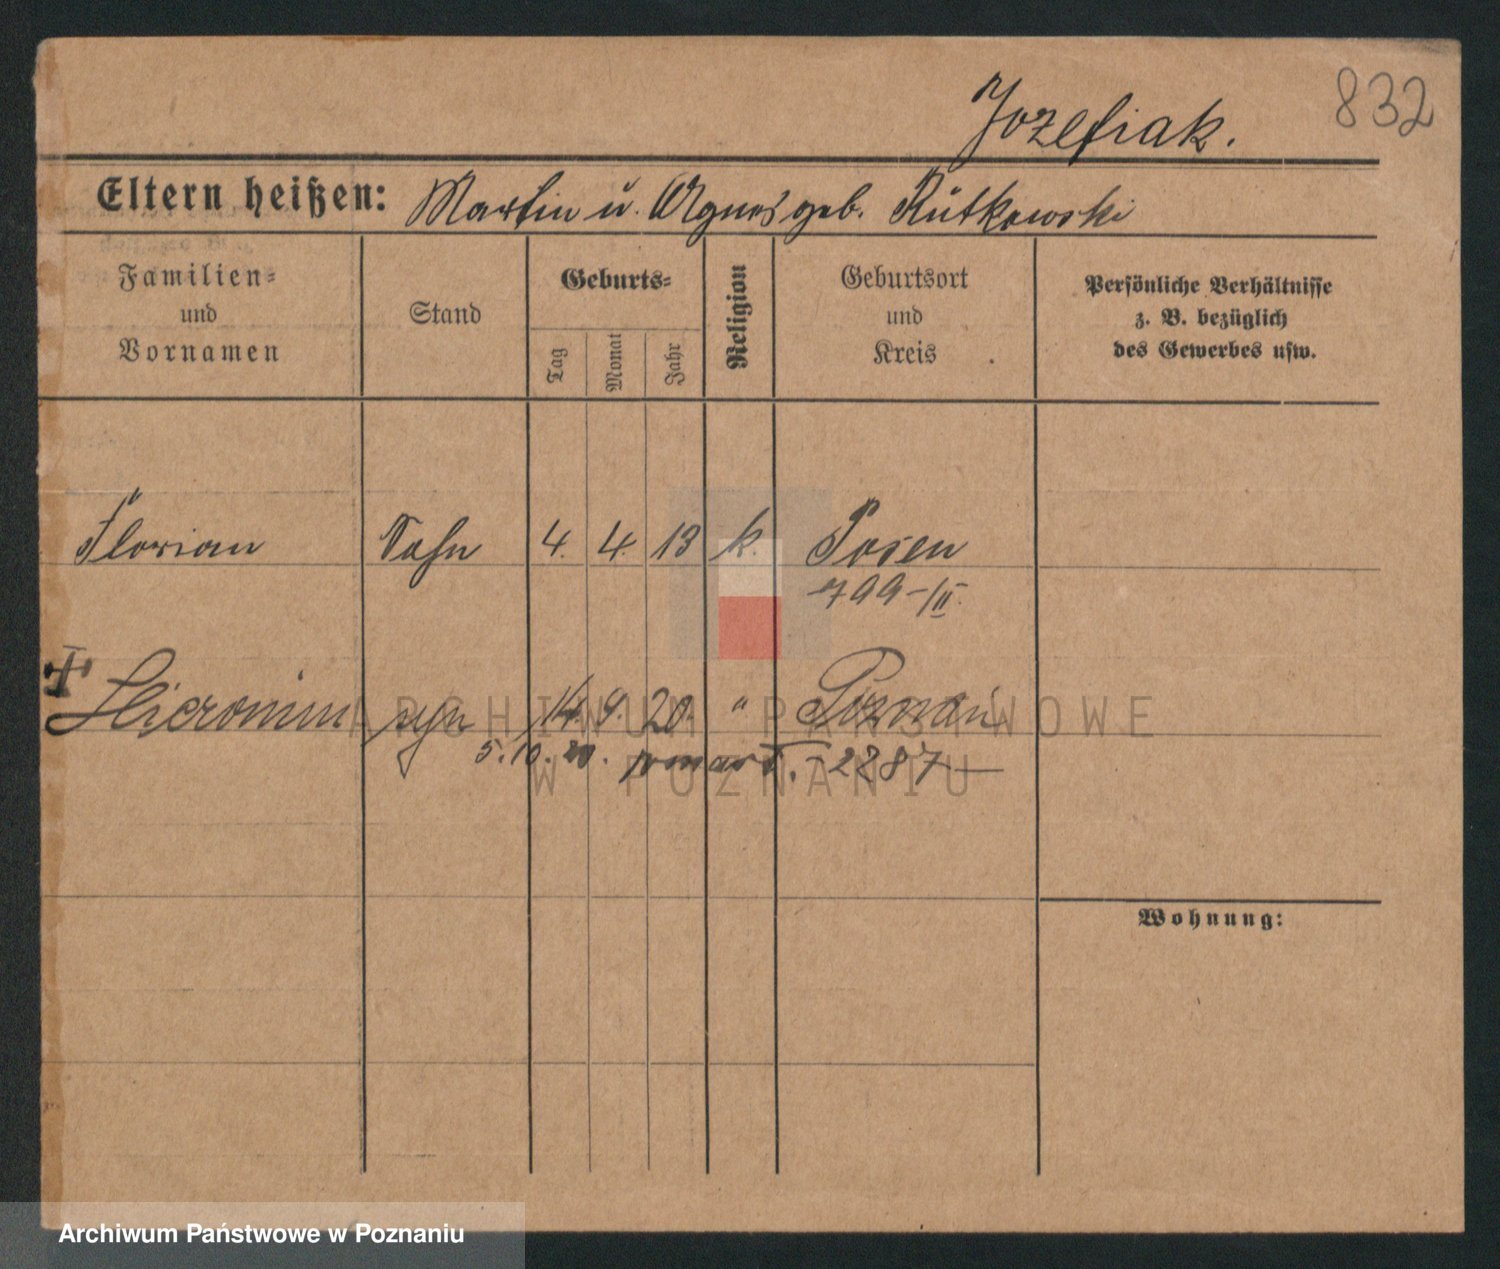 832
Jozefiak.
Eltern heißen: Martin u. Agnes geb. Rutkowski
Familien-
und
Vornamen
Stand
Geburts-
Tag
Monat
Jahr
Religion
Geburtsort
und
Kreis
Persönliche Verhältnisse
z. B. bezüglich
des Gewerbes usw.
Florian Sohn 4. 4. 13 k. Posen
799-/II.
Hieronim syn 14. 9. 20. " Poznań
5.10.20. - 2287 -
Wohnung:
ARCHIWUM PAŃSTWOWE
W POZNANIU
Archiwum Państwowe w Poznaniu